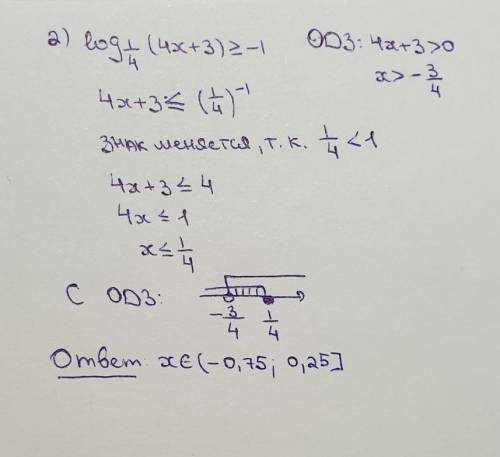 2) log_{1/4} (4x+3) ≥ -1 ОДЗ: 4x+3>0
x > -3/4
4x+3 ≤ (1/4)^{-1}
знак меняется, т.к. 1/4 < 1
4x+3 ≤ 4
4x ≤ 1
x ≤ 1/4
С ОДЗ:
-3/4 1/4
Ответ: x∈(-0,75; 0,25]